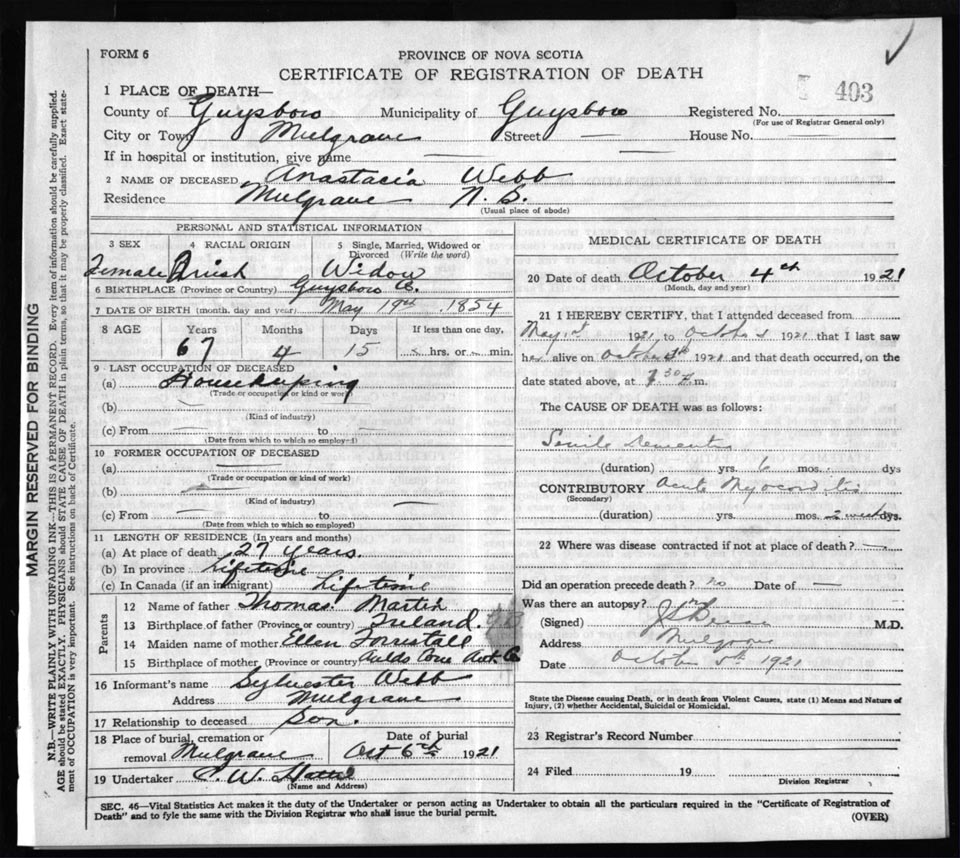 FORM 6
PROVINCE OF NOVA SCOTIA
CERTIFICATE OF REGISTRATION OF DEATH
403
1 PLACE OF DEATH—
County of Guysboro Municipality of Guysboro Registered No.
(For use of Registrar General only)
City or Town Mulgrave Street — House No.
If in hospital or institution, give name — —
2 NAME OF DECEASED Anastacia Webb
Residence Mulgrave N. S.
(Usual place of abode)
PERSONAL AND STATISTICAL INFORMATION
3 SEX 4 RACIAL ORIGIN 5 Single, Married, Widowed or Divorced (Write the word)
Female Irish Widow
6 BIRTHPLACE (Province or Country) Guysboro Co.
7 DATE OF BIRTH (month, day and year) May 19th 1854
8 AGE Years Months Days If less than one day,
67 4 15 hrs. or min.
9 LAST OCCUPATION OF DECEASED
(a) Housekeeping
(Trade or occupation or kind or work)
(b)
(Kind of industry)
(c) From — to —
(Date from which to which so employed)
10 FORMER OCCUPATION OF DECEASED
(a) —
(Trade or occupation or kind of work)
(b) —
(Kind of industry)
(c) From — to —
(Date from which to which so employed)
11 LENGTH OF RESIDENCE (In years and months)
(a) At place of death 27 years.
(b) In province Lifetime
(c) In Canada (if an immigrant) Lifetime
Parents
12 Name of father Thomas Martin
13 Birthplace of father (Province or country) Ireland
14 Maiden name of mother Ellen Forrestall
15 Birthplace of mother (Province or country) Aulds Cove Ant. Co
16 Informant's name Sylvester Webb
Address Mulgrave
17 Relationship to deceased Son.
18 Place of burial, cremation or removal Mulgrave
Date of burial Oct 6th 1921
19 Undertaker W.
(Name and Address)
MEDICAL CERTIFICATE OF DEATH
20 Date of death October 4th 1921
(Month, day and year)
21 I HEREBY CERTIFY, that I attended deceased from
May 1st 1921 to October 1921 that I last saw
her alive on October 1921 and that death occurred, on the
date stated above, at 30 m.
The CAUSE OF DEATH was as follows:
Senile Dementia
(duration) yrs. 6 mos. dys
CONTRIBUTORY Acute Myocarditis
(Secondary)
(duration) yrs. mos. 2 weeks dys.
22 Where was disease contracted if not at place of death? —
Did an operation precede death? no Date of —
Was there an autopsy? no
(Signed) M.D.
Address Mulgrave
Date October 5th 1921
State the Disease causing Death, or in death from Violent Causes, state (1) Means and Nature of
Injury, (2) whether Accidental, Suicidal or Homicidal.
23 Registrar's Record Number
24 Filed 19
Division Registrar
SEC. 46—Vital Statistics Act makes it the duty of the Undertaker or person acting as Undertaker to obtain all the particulars required in the "Certificate of Registration of
Death" and to fyle the same with the Division Registrar who shall issue the burial permit.
(OVER)
MARGIN RESERVED FOR BINDING
N.B.—WRITE PLAINLY WITH UNFADING INK—THIS IS A PERMANENT RECORD. Every item of information should be carefully supplied.
AGE should be stated EXACTLY. PHYSICIANS should STATE CAUSE OF DEATH in plain terms, so that it may be properly classified. Exact state-
ment of OCCUPATION is very important. See instructions on back of Certificate.